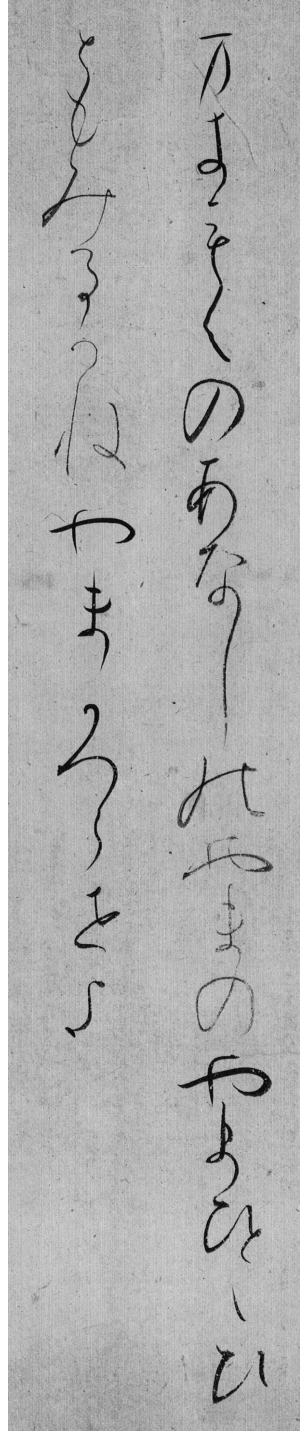 まきもくのあなしのやまのやまひとゝひ
ともみるかにやまかつらせよ